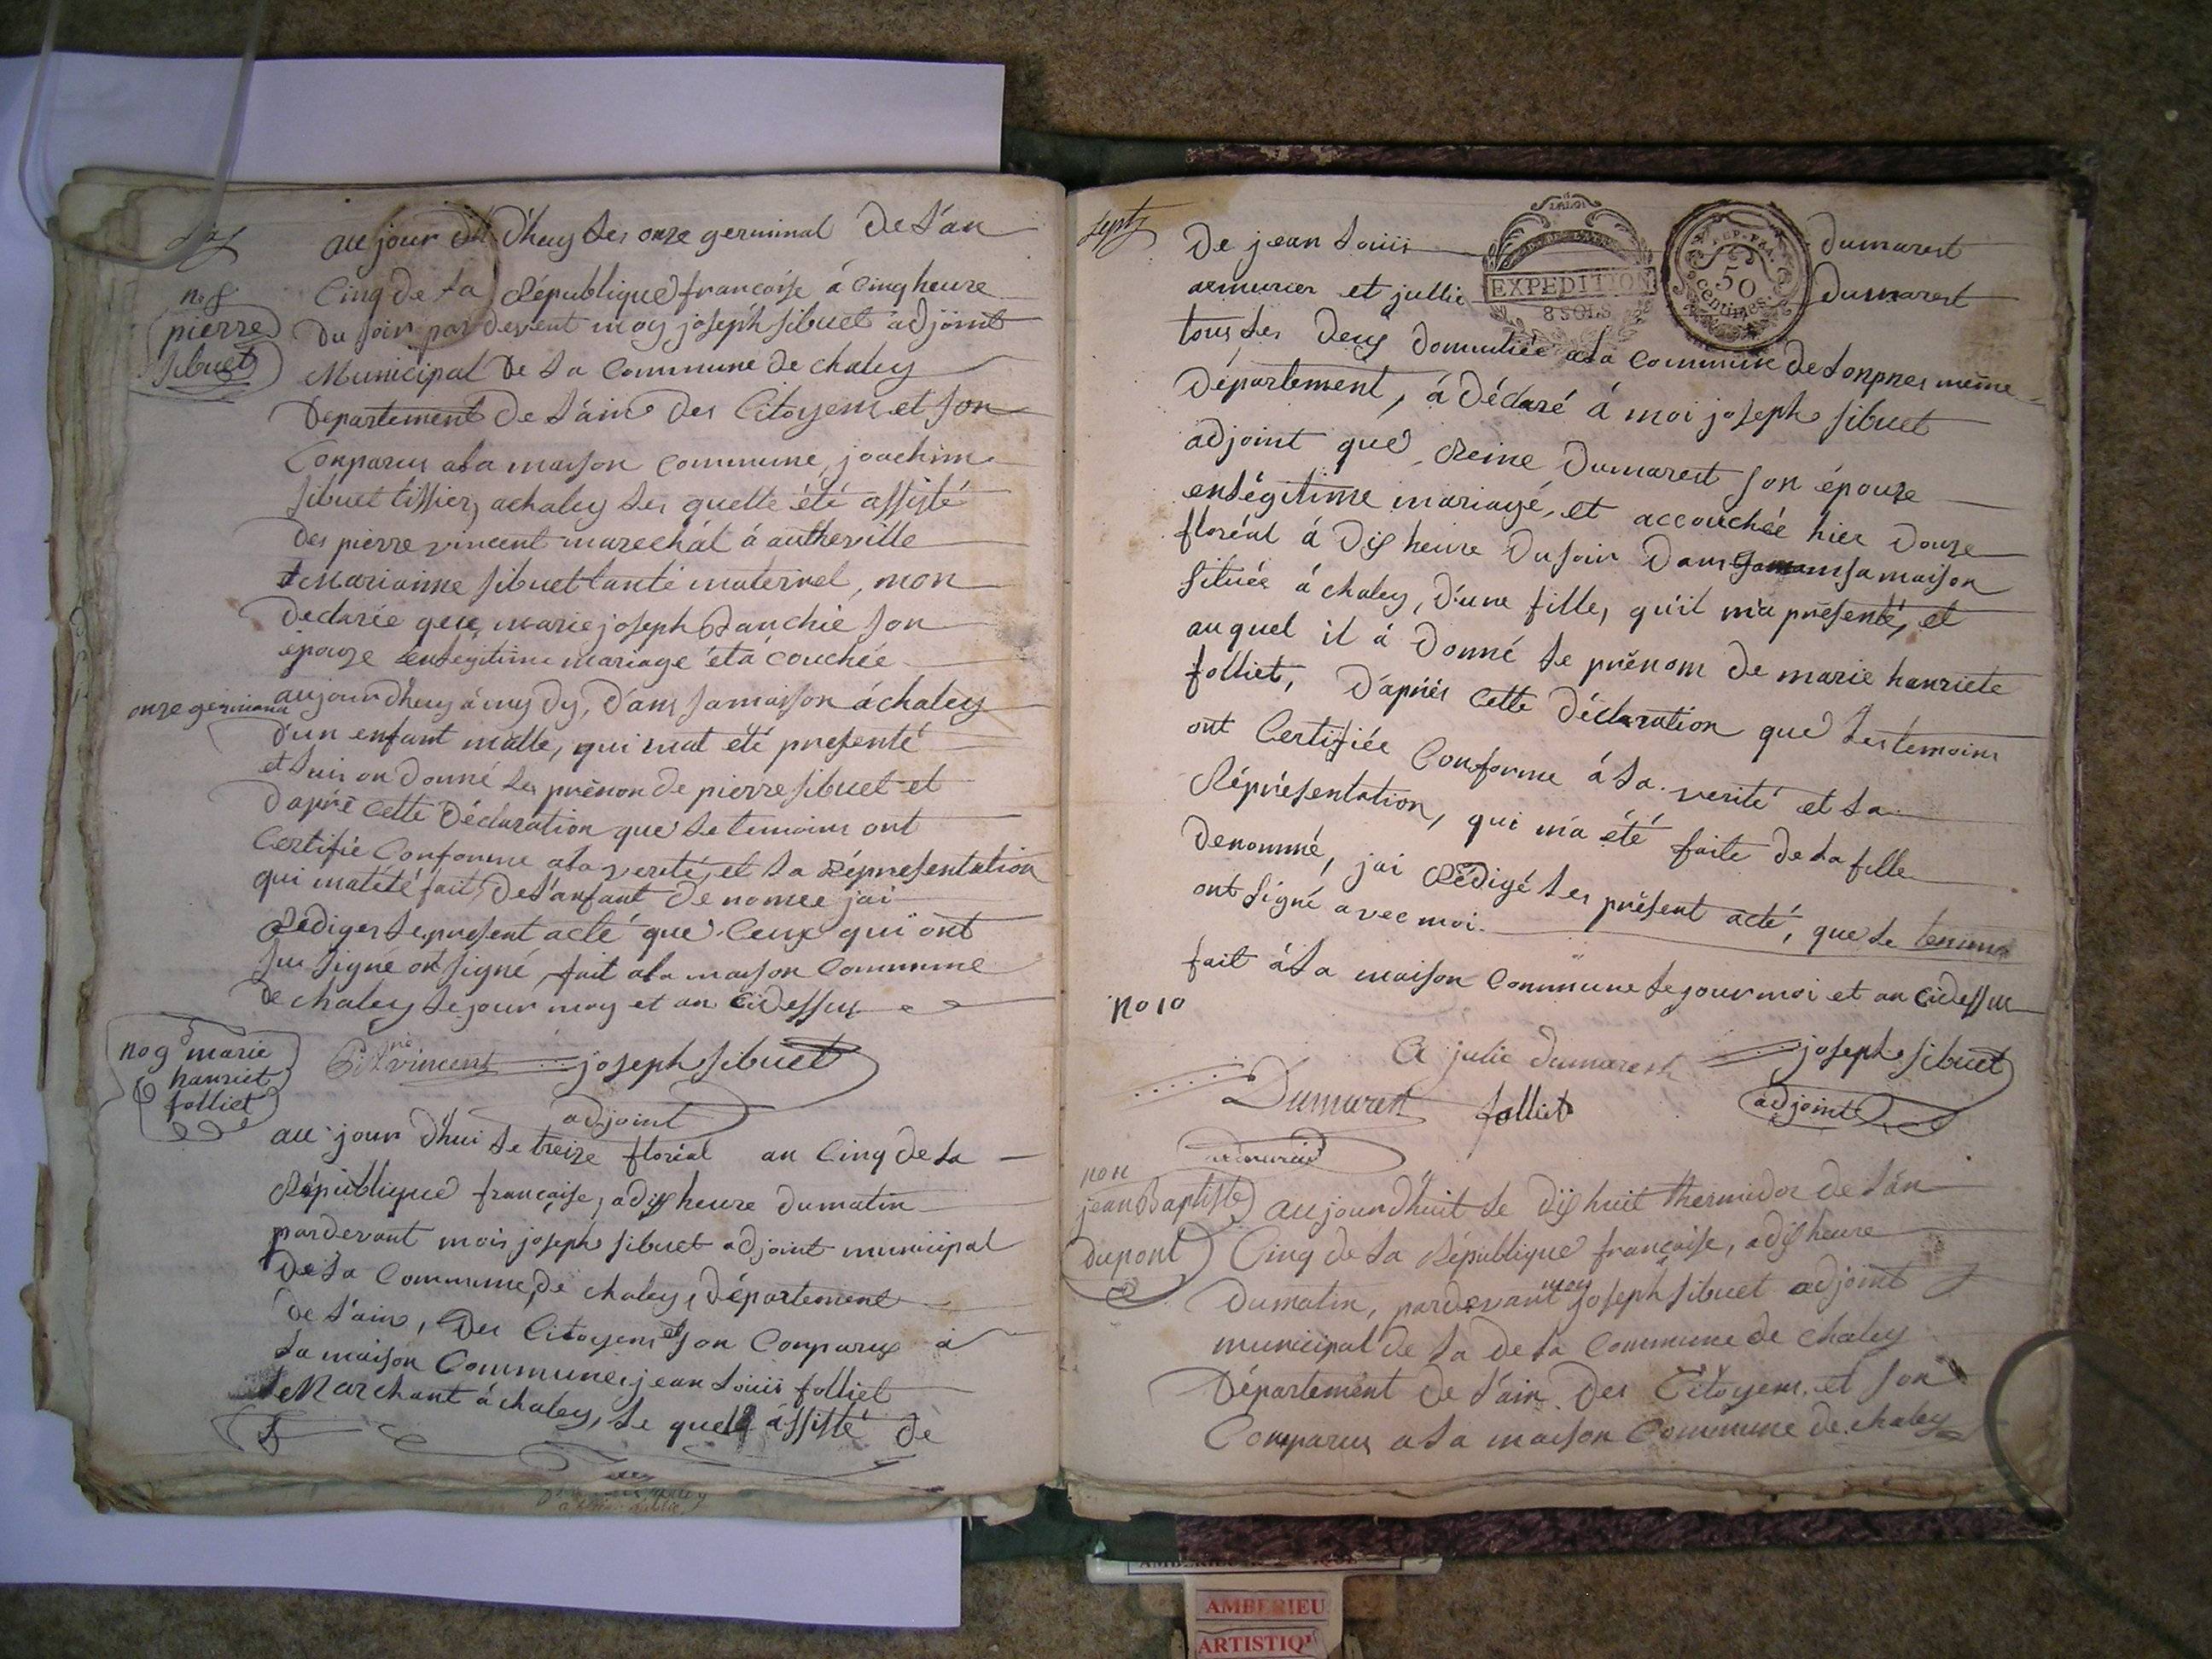 no 8
pierre
sibuet
au jour d'huy les onze germinal de l'an
Cinq de la République francaise à Cinq heure
du soir par devent moy joseph sibuet adjoint
Municipal de la Commune de chaley
Département de l'ain des Citoyens et son
Conparus a la maison Commune joachim
sibuet tissier, a chaley les quelle été assisté
des pierre vincent marechál à
Marianne sibuet tante maternel, mon
declarée que marie joseph son
épouze en légitime mariage été à couchée
onze germinal
aujourdhuy à my dy, dans sa maison à chaley
d'un enfant malle, qui mat été presenté
et luis on donné les prénon de pierre sibuet et
daprè cette Déclaration que le temoins ont
Certifié Conforme a la verité, et la Répresentation
qui mat été fait de l'anfant denomee jai
Rédiger le present acté que Ceux qui ont
su signé on signé fait a la maison Commune
de chaley le jour moy et an Cidessus
vincent joseph sibuet
adjoint
no 9 marie
hanriet
folliet
au jour d'hui le treize floréal an Cinq de la
République française, a dix heure du matin
pardevant mois joseph sibuet adjoint municipal
de la Commune, de chaley, département
de l'ain, des Citoyens et son Conparux à
la maison Commune, jean Louis folliet
Marchant à chaley, le quel assisté de
sept
de jean Louis dumarest
armurier et jullie dumarest
EXPEDITION
8 SOLS
REP. FRA.
50
centimes
tous les deux a la Commune de même
Département, à Déclaré à moi joseph sibuet
adjoint que Reine Dumarest son épouze
en légitime mariage, et accouchée hier douze
floréal à dix heure du soir dans sa maison
située à chaley, d'une fille, qu'il m'a présenté, et
au quel il à donné le prénom de marie hanriete
folliet, d'apriés Cette Déclaration que les temoins
ont Certifiée Conforme à la verité et la
Réprésentation, qui m'a été faite de la fille
denommé, jai Rédigé les présent acté, que le
ont signé avec moi.
fait à la maison Commune le jour moi et an Cidessus
no 10
julie dumarest joseph sibuet
Dumarest folliet adjoint
jean Baptiste
dupont
aujourdhuit le dix huit thermidor de l'án
Cinq de la République française, a dix heure
du matin, pardevant moy joseph sibuet adjoint
municipal de la de la Commune de Chaley
Département de l'ain des Citoyens, et son
Comparus a la maison Commune de chaley
AMBERIEU
ARTISTIQ